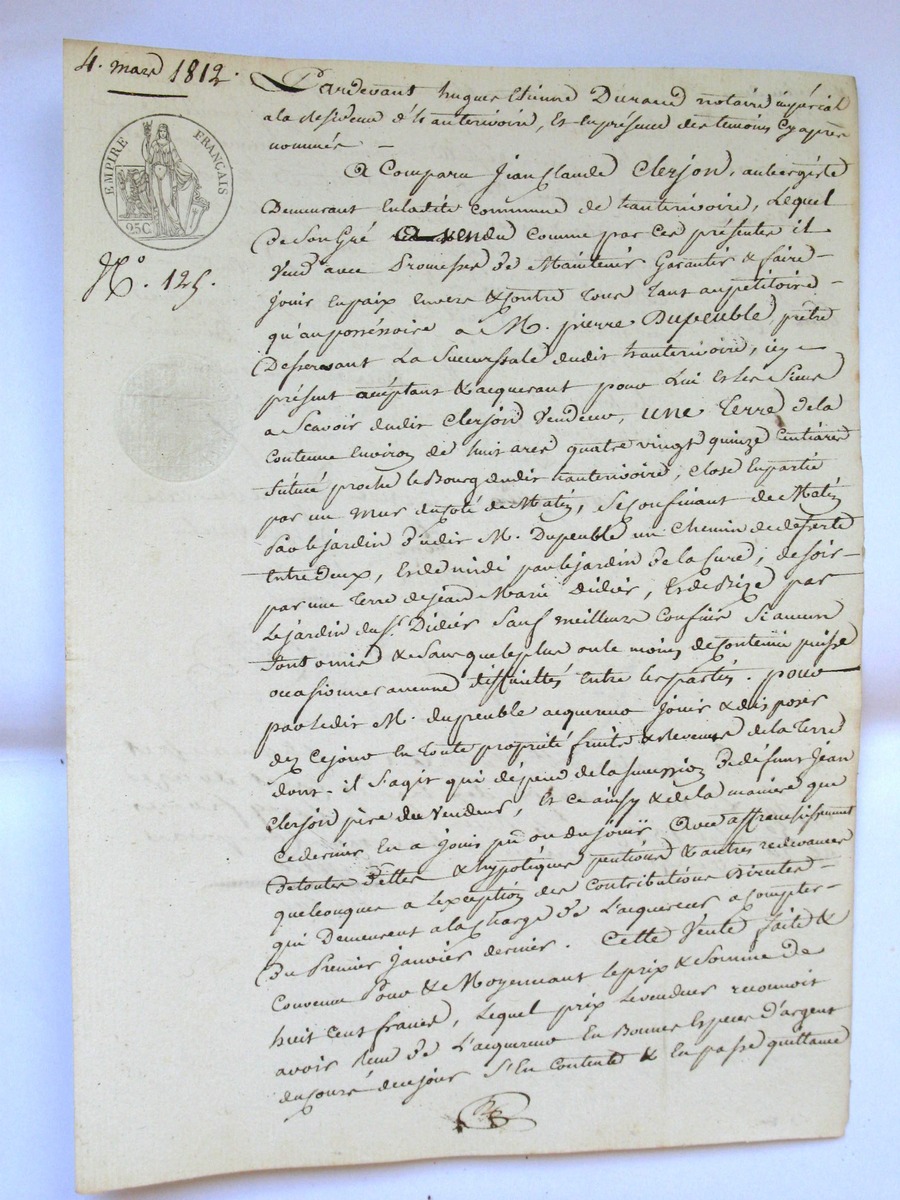 4. mars 1812.
EMPIRE FRANÇAIS
25C.
N.° 125.
Pardevant hugues Etienne Durand notaire impérial
a la Residence d'hauterivoire, Et en presence des temoins Cy après
nommés —
A Comparu Jean Claude Clerjon, aubergiste
Demeurant En ladite commune de hauterivoire, Lequel
De Son Gré a vendu comme par Ces présentes il
Vend avec Promesse de Maintenir Garantir & faire
jouir En paix Envers & Contre Tous Tant au petitoire
qu'au posséssoire a M. pierre Dupeuble prêtre
Desservant La Succursale dudit hauterivoire, icy
présent acéptant & acquerant pour Lui Et les Siens
a Scavoir dudit Clerjon Vendeur, une Terre de la
Contenue Environ de huit ares quatre vingt quinze Centiares
Situé proche le Bourg dudit hauterivoire, Close En partie
par un mur du Coté de Matin, Se Confinant de Matin
Par le jardin dudit M. Dupeuble un Chemin de deserte
Entre deux, Et de midi par le jardin de la Cure, de soir
par une Terre de jean Marie Didier, Et de Bize par
Le jardin du S.r Didier Sauf meilleurs Confins Si aucun
Sont omis & Sans que le plus ou le moins de Contenue puisse
occasionner aucune difficultés Entre les parties. pour
par Ledit M. dupeuble acquereur jouir & disposer
dez Ce jour En Toute propriété fruits & Revenus de la Terre
dont il S'agit qui dépend de la Succession de défunt Jean
Clerjon père du Vendeur, Et Ce ainsy & de la maniere que
Ce dernier En a joui pû ou du jouir Avec affranchissement
De toutes Dettes & hypotèques pentions & autres redevances
quelconques a l'exception des Contributions Directes
qui Demeurent a la Charge de L'acquereur a Compter
Du Premier Janvier dernier. Cette Vente faite &
Convenue Pour & Moyennant le prix & Somme de
huit Cent francs, Lequel prix Le vendeur reconnoit
avoir Reçu de L'acquereur En Bonnes Espèces d'argent
du Cours de ce jour S'En Contente & En passe quittance